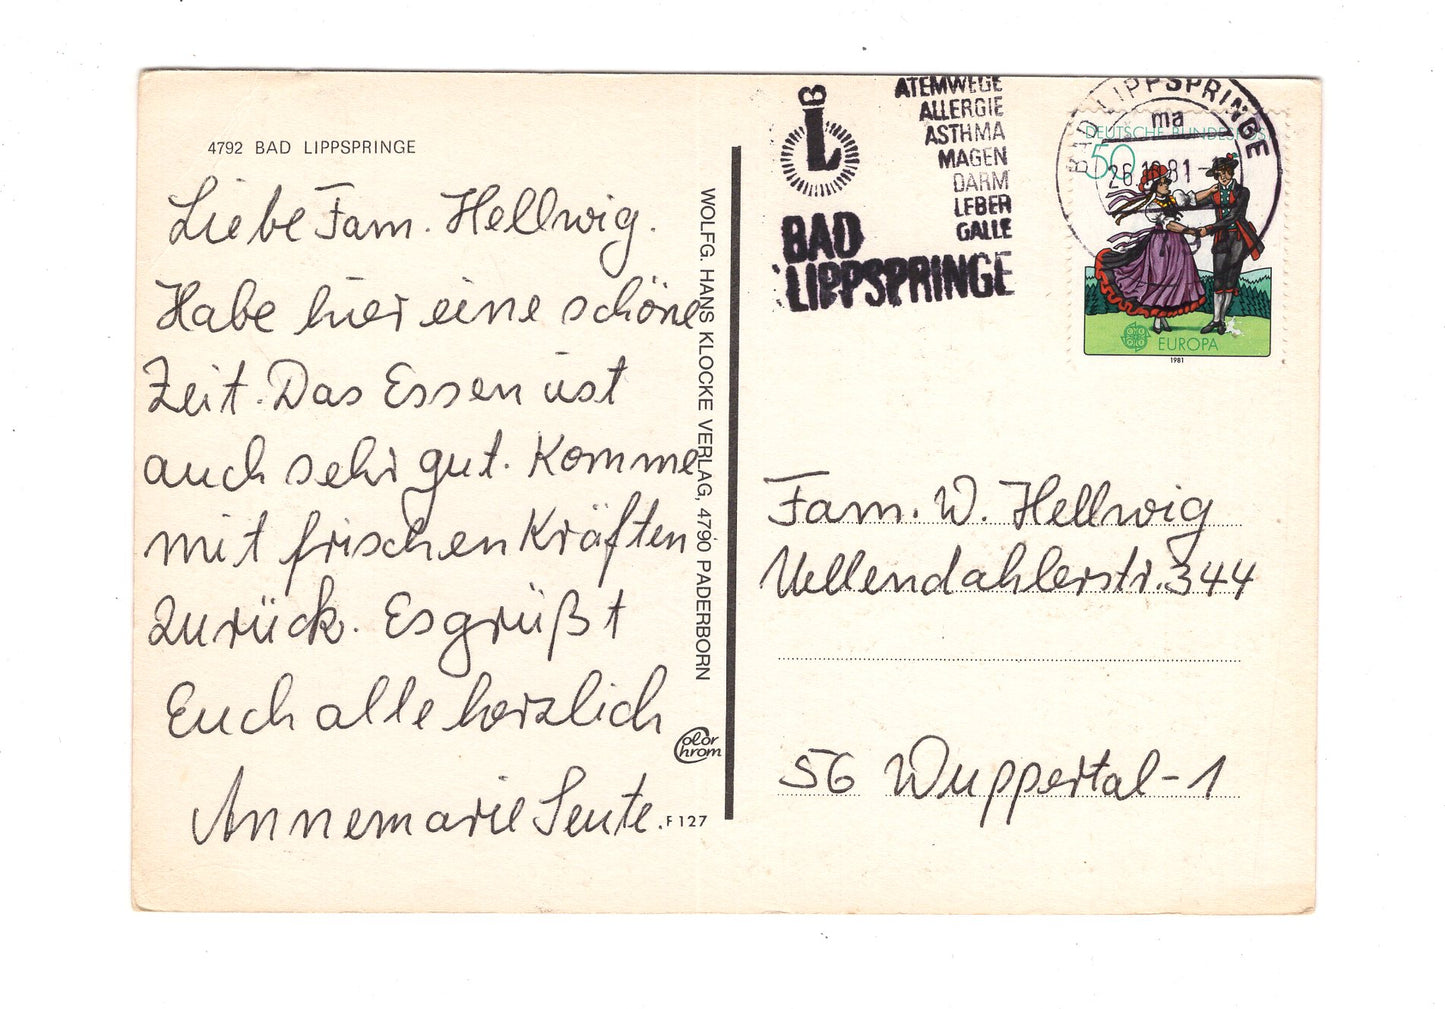 4792 BAD LIPPSPRINGE
Liebe Fam. Hellwig.
Habe hier eine schöne
Zeit. Das Essen ist
auch sehr gut. Komme
mit frischen Kräften
zurück. Es grüßt
Euch alle herzlich
Annemarie Seute.
F 127
WOLFG. HANS KLOCKE VERLAG, 4790 PADERBORN
Color
Chrom
LB
ATEMWEGE
ALLERGIE
ASTHMA
MAGEN
DARM
LEBER
GALLE
BAD
LIPPSPRINGE
BAD LIPPSPRINGE
ma
26.10.81
DEUTSCHE BUNDESPOST
50
EUROPA
1981
Fam. W. Hellwig
Uellendahlerstr. 344
56 Wuppertal-1